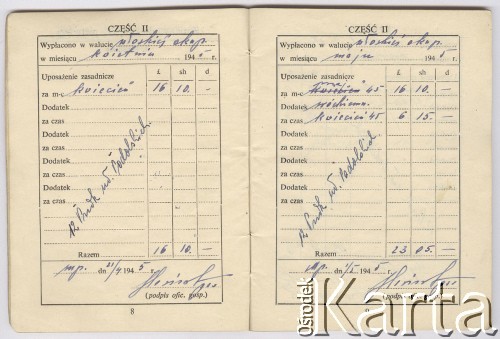 CZĘŚĆ II
Wypłacono w walucie włoskiej okup.
w miesiącu kwietniu 1945 r.
Uposażenie zasadnicze £ sh d
za m-c kwiecień 16 10. —
Dodatek
za czas
Dodatek
za czas
Dodatek
za czas
Dodatek
za czas
12 Pułk Uł. Podolskich
Razem 16 10. —
mp. dn 21/4 1945
(podpis ofic. gosp.)
8
CZĘŚĆ II
Wypłacono w walucie włoskiej okup.
w miesiącu maju 1945 r.
Uposażenie zasadnicze £ sh d
za m-c maj 45 16 10. —
Dodatek
za czas kwiecień 45 6 15. —
Dodatek
za czas
Dodatek
za czas
Dodatek
za czas
12 Pułk Uł. Podolskich
Razem 23 05. —
mp. dn 1945 r.
(podpis
Ośrodek
Karta